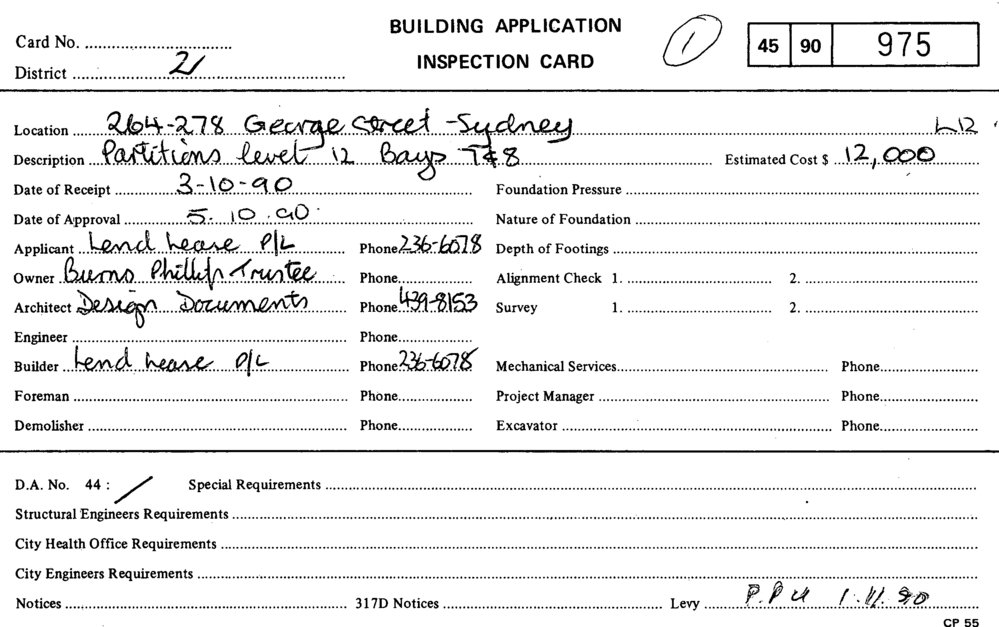 BUILDING APPLICATION
INSPECTION CARD
Card No.
District 21
1
45 90 975
Location 264-278 George Street - Sydney L12
Description Partitions level 12 Bays 7&8 Estimated Cost $ 12,000
Date of Receipt 3-10-90 Foundation Pressure
Date of Approval 5.10.90 Nature of Foundation
Applicant Lend Lease P/L Phone 236-6078 Depth of Footings
Owner Burns Phillip Trustee Phone Alignment Check 1. 2.
Architect Design Documents Phone 439-8153 Survey 1. 2.
Engineer Phone
Builder Lend Lease P/L Phone 236-6078 Mechanical Services Phone
Foreman Phone Project Manager Phone
Demolisher Phone Excavator Phone
D.A. No. 44 : / Special Requirements
Structural Engineers Requirements
City Health Office Requirements
City Engineers Requirements
Notices 317D Notices Levy 1.11.90
CP 55